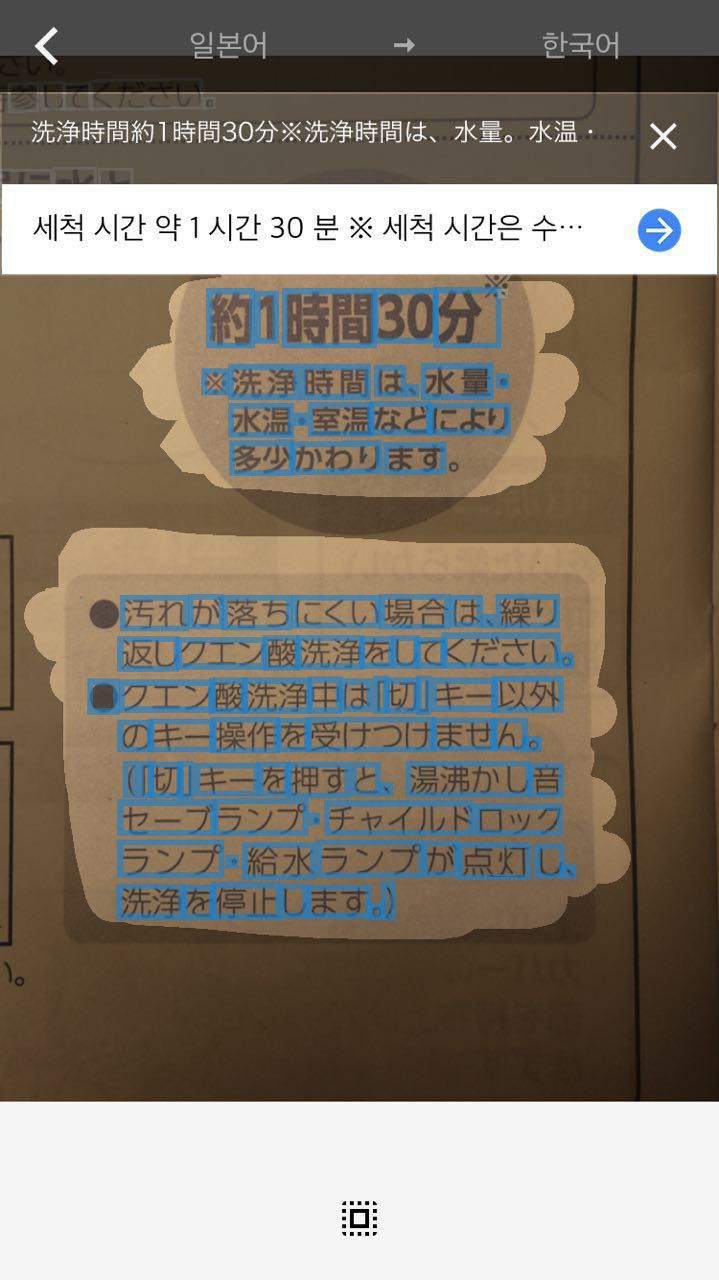 일본어 → 한국어
さい。
参してください。
洗浄時間約1時間30分※洗浄時間は、水量。水温・
に水と
세척 시간 약 1 시간 30 분 ※ 세척 시간은 수…
※
約1時間30分
※洗浄時間は、水量・
水温・室温などにより
多少かわります。
●汚れが落ちにくい場合は、繰り
返しクエン酸洗浄をしてください。
●クエン酸洗浄中は「切」キー以外
のキー操作を受けつけません。
(「切」キーを押すと、湯沸かし音
セーブランプ・チャイルドロック
ランプ・給水ランプが点灯し、
洗浄を停止します。)
い。